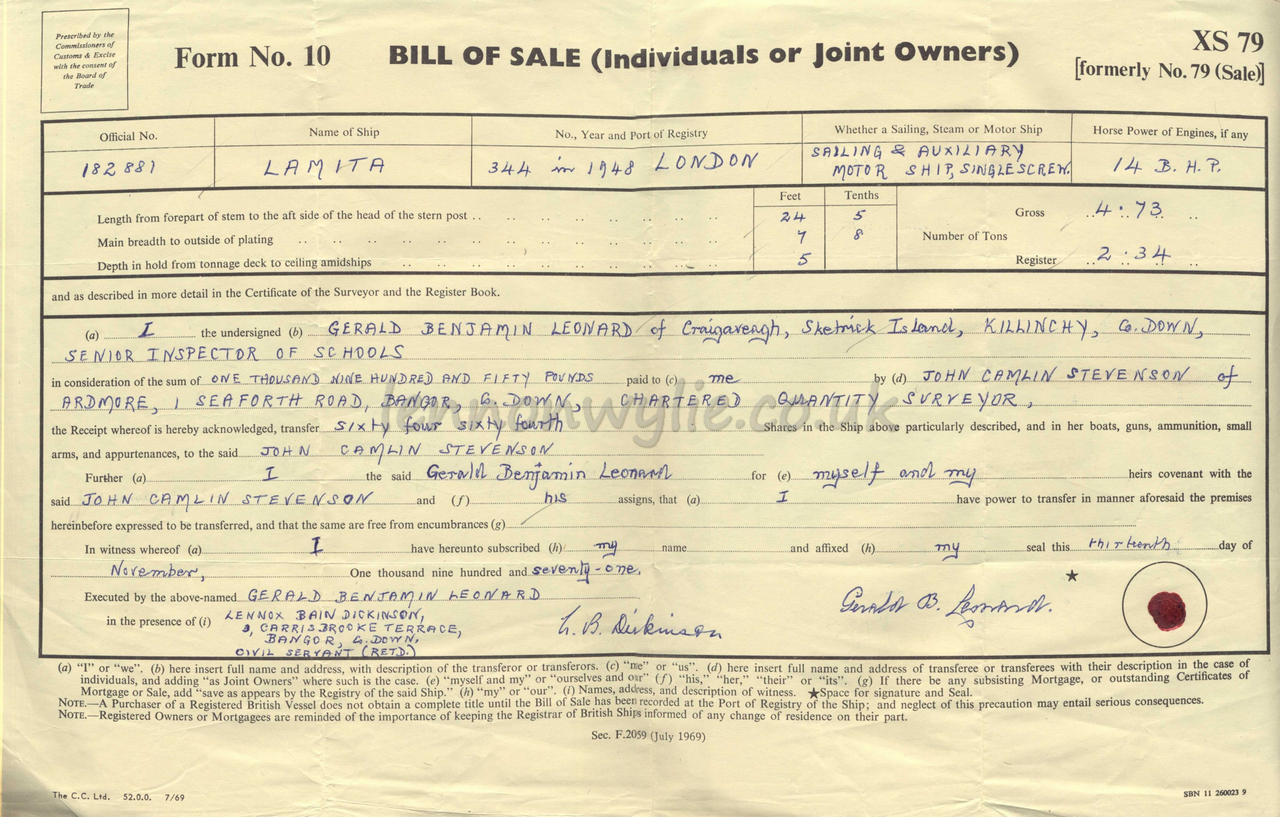 Prescribed by the
Commissioners of
Customs & Excise
with the consent of
the Board of
Trade
Form No. 10
BILL OF SALE (Individuals or Joint Owners)
XS 79
[formerly No. 79 (Sale)]
Official No.
Name of Ship
No., Year and Port of Registry
Whether a Sailing, Steam or Motor Ship
Horse Power of Engines, if any
182881
LAMITA
344 in 1948 LONDON
SAILING & AUXILIARY
MOTOR SHIP, SINGLESCREW.
14 B.H.P.
Feet Tenths
Length from forepart of stem to the aft side of the head of the stern post .. 24 5 Gross 4.73
Main breadth to outside of plating 7 8 Number of Tons
Depth in hold from tonnage deck to ceiling amidships 5 Register 2.34
and as described in more detail in the Certificate of the Surveyor and the Register Book.
(a) I the undersigned (b) GERALD BENJAMIN LEONARD of Craigaveagh, Sketrick Island, KILLINCHY, Co. DOWN,
SENIOR INSPECTOR OF SCHOOLS
in consideration of the sum of ONE THOUSAND NINE HUNDRED AND FIFTY POUNDS paid to (c) me by (d) JOHN CAMLIN STEVENSON of
ARDMORE, 1 SEAFORTH ROAD, BANGOR, Co. DOWN, CHARTERED QUANTITY SURVEYOR,
lennonwylie.co.uk
the Receipt whereof is hereby acknowledged, transfer sixty four sixty fourth Shares in the Ship above particularly described, and in her boats, guns, ammunition, small
arms, and appurtenances, to the said JOHN CAMLIN STEVENSON
Further (a) I the said Gerald Benjamin Leonard for (e) myself and my heirs covenant with the
said JOHN CAMLIN STEVENSON and (f) his assigns, that (a) I have power to transfer in manner aforesaid the premises
hereinbefore expressed to be transferred, and that the same are free from encumbrances (g)
In witness whereof (a) I have hereunto subscribed (h) my name and affixed (h) my seal this thirteenth day of
November, One thousand nine hundred and seventy-one.
Executed by the above-named GERALD BENJAMIN LEONARD
in the presence of (i) LENNOX BAIN DICKINSON,
3, CARRISBROOKE TERRACE,
BANGOR, Co. DOWN.
CIVIL SERVANT (RETD.)
L. B. Dickinson
Gerald B. Leonard.
★
(a) "I" or "we". (b) here insert full name and address, with description of the transferor or transferors. (c) "me" or "us". (d) here insert full name and address of transferee or transferees with their description in the case of
individuals, and adding "as Joint Owners" where such is the case. (e) "myself and my" or "ourselves and our" (f) "his," "her," "their" or "its". (g) If there be any subsisting Mortgage, or outstanding Certificates of
Mortgage or Sale, add "save as appears by the Registry of the said Ship." (h) "my" or "our". (i) Names, address, and description of witness. ★Space for signature and Seal.
NOTE.—A Purchaser of a Registered British Vessel does not obtain a complete title until the Bill of Sale has been recorded at the Port of Registry of the Ship; and neglect of this precaution may entail serious consequences.
NOTE.—Registered Owners or Mortgagees are reminded of the importance of keeping the Registrar of British Ships informed of any change of residence on their part.
Sec. F.2059 (July 1969)
The C.C. Ltd. 52.0.0. 7/69
SBN 11 260023 9